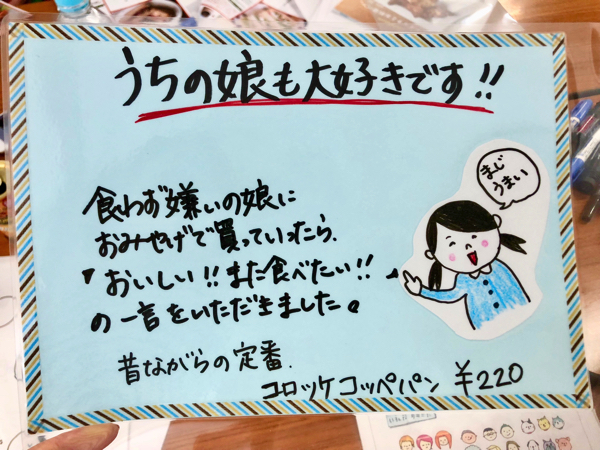 うちの娘も大好きです!!
まじ
うまい
食わず嫌いの娘に
おみやげで買っていったら、
「おいしい!!また食べたい!!」
の一言をいただきました。
昔ながらの定番、
コロッケコッペパン ¥220